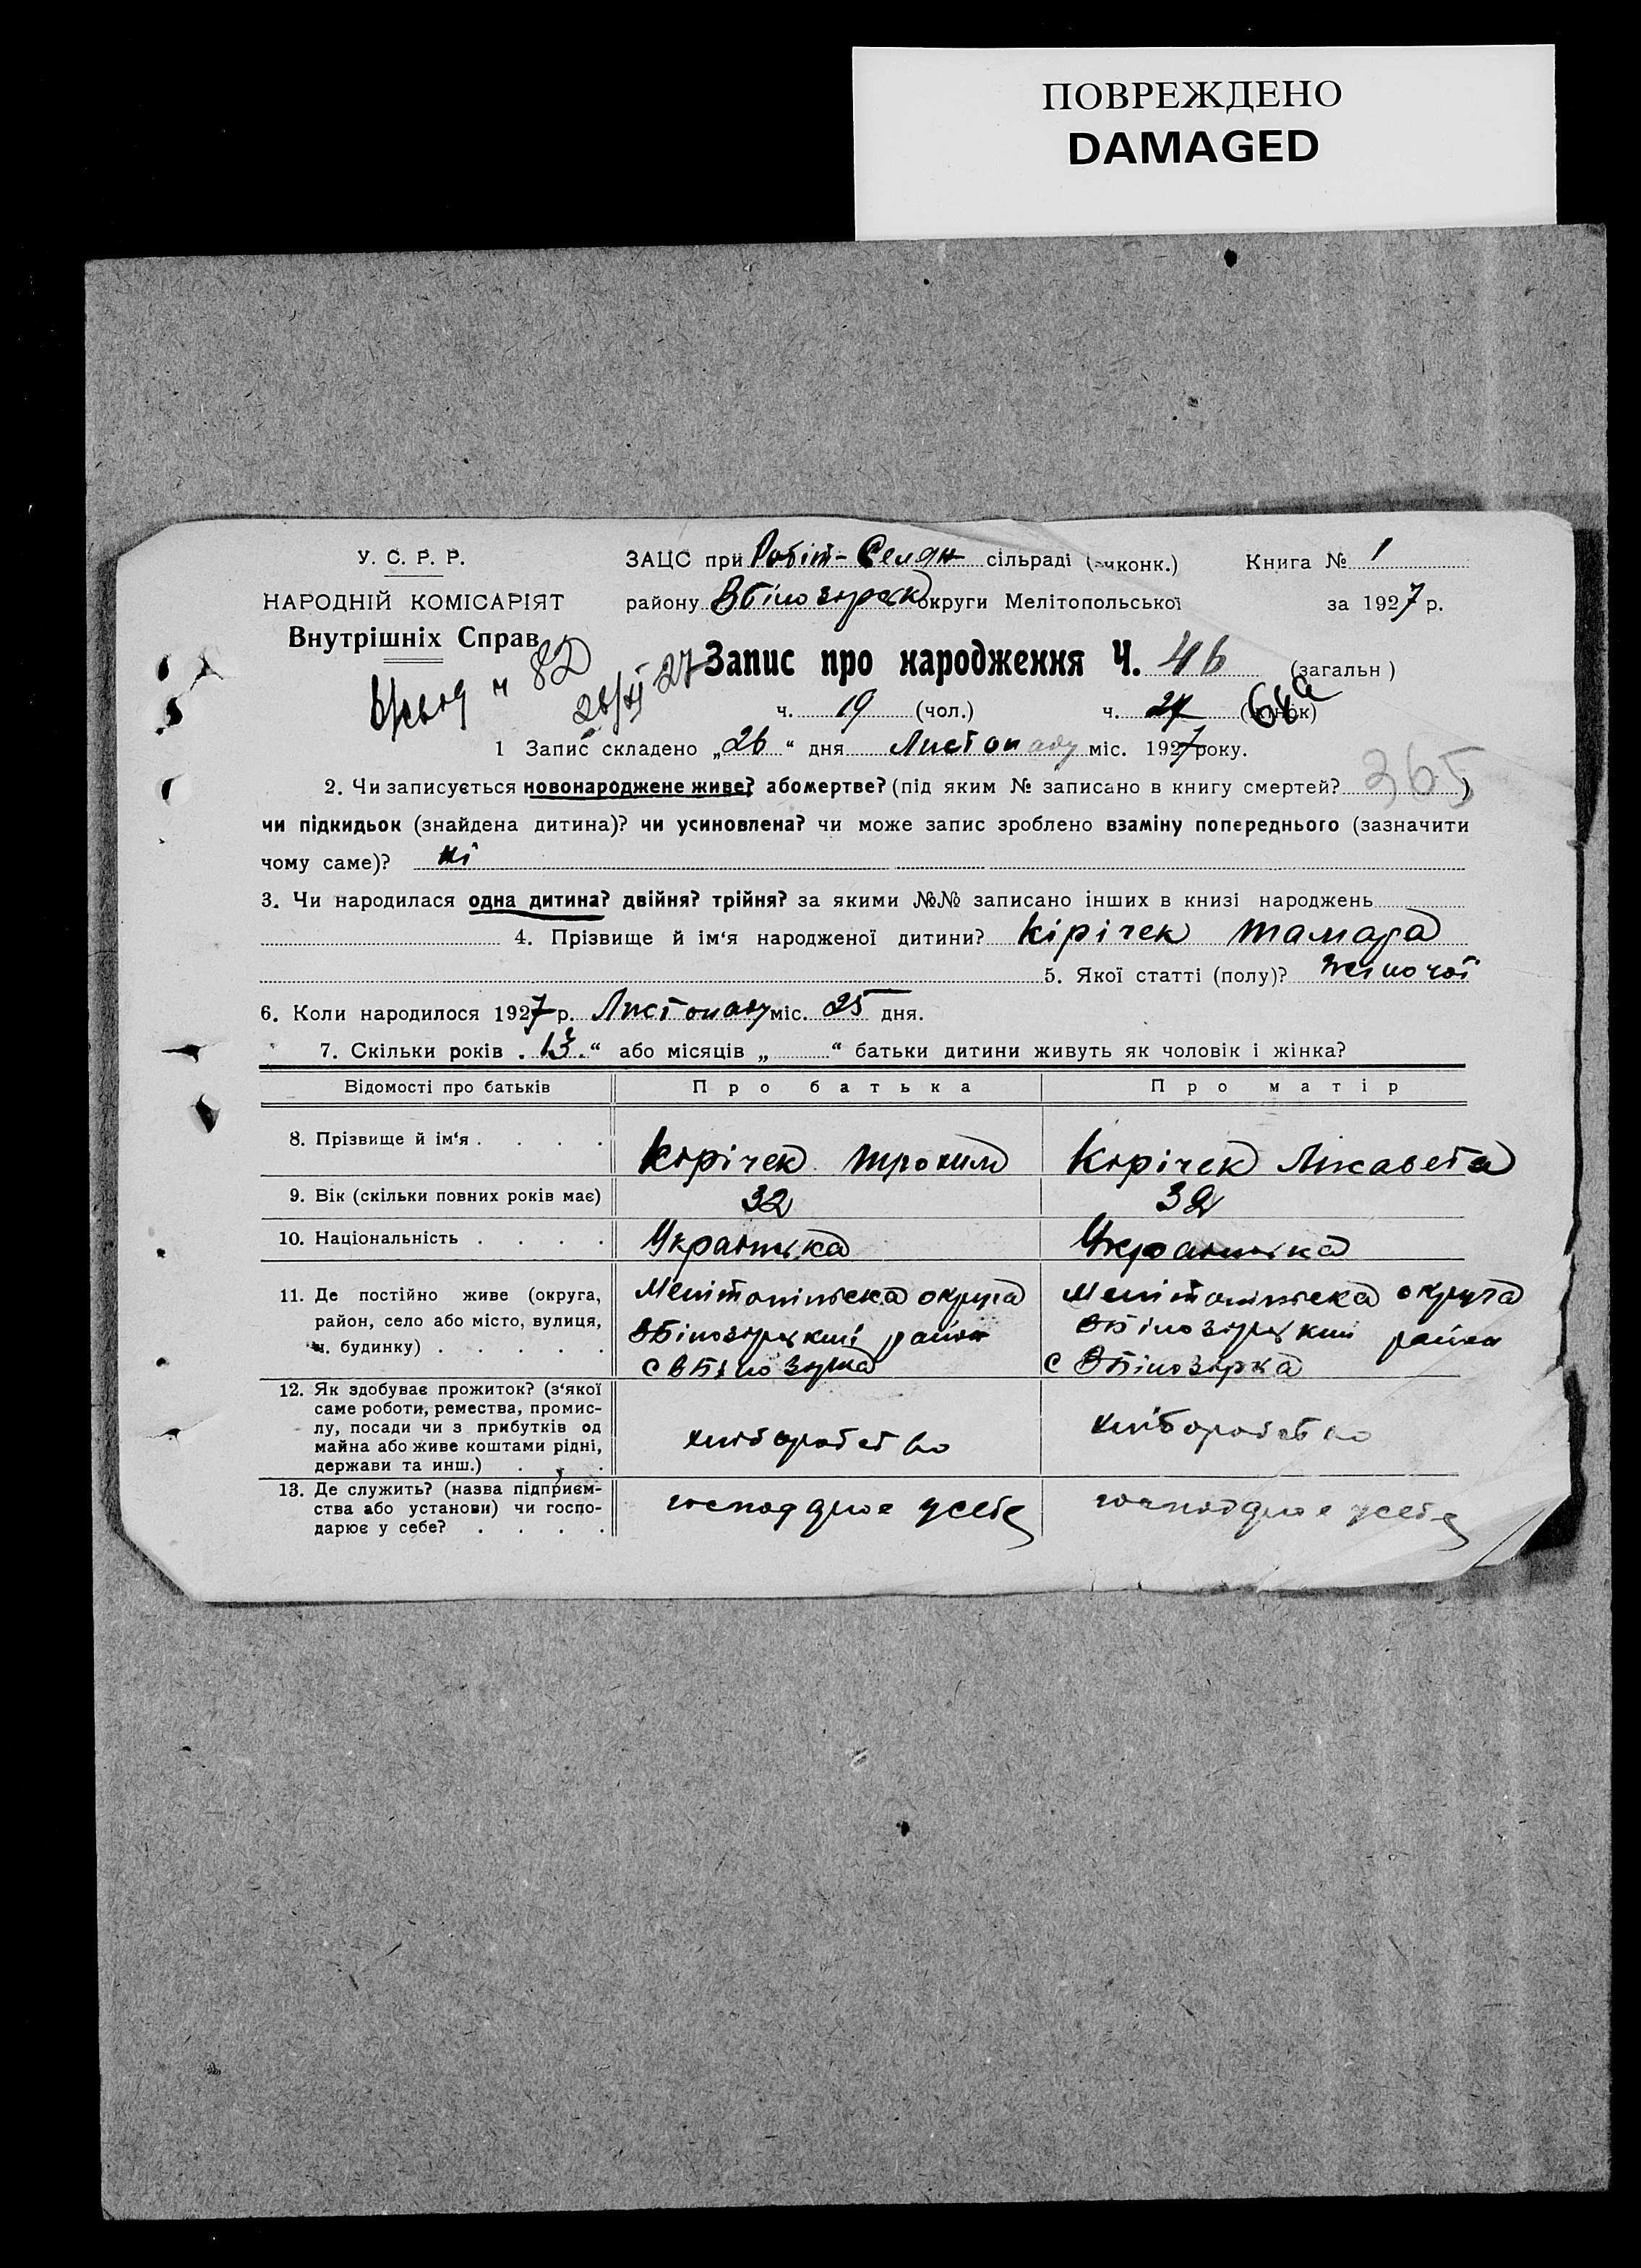 ПОВРЕЖДЕНО
DAMAGED
У. С. Р. Р.
НАРОДНІЙ КОМІСАРІЯТ
Внутрішніх Справ
ЗАЦС при Робіт-Селян сільраді (виконк.) Книга № 1
району ВБілозірськ округи Мелітопольської за 1927 р.
82
26/XI 27
Запис про народження Ч. 46 (загальн)
ч. 19 (чол.) ч. 27 (жінок) 64а
1 Запис складено „26“ дня Листопаду міс. 1927 року.
2. Чи записується новонароджене живе? або мертве? (під яким № записано в книгу смертей? 365)
чи підкидьок (знайдена дитина)? чи усиновлена? чи може запис зроблено взаміну попереднього (зазначити
чому саме)? ні
3. Чи народилася одна дитина? двійня? трійня? за якими №№ записано інших в книзі народжень
4. Прізвище й ім‘я народженої дитини? Кірічек Тамара
5. Якої статті (полу)? Жіночої
6. Коли народилося 1927 р. Листопаду міс. 25 дня.
7. Скільки років „13“ або місяців „ “ батьки дитини живуть як чоловік і жінка?
Відомості про батьків Про батька Про матір
8. Прізвище й ім‘я . . . . Кірічек Трохим Кірічек Лисавета
9. Вік (скільки повних років має) 32 32
10. Національність . . . . Українська Українська
11. Де постійно живе (округа, Мелітопільска округа Мелітопільска округа
район, село або місто, вулиця, ВБілозірський район ВБілозірський район
ч. будинку) . . . . . с ВБілозірка с ВБілозірка
12. Як здобуває прожиток? (з‘якої
саме роботи, ремества, промис-
лу, посади чи з прибутків од хліборобство хліборобство
майна або живе коштами рідні,
держави та инш.) . . .
13. Де служить? (назва підприєм-
ства або установи) чи госпо- господарює у себе господарює у себе
дарює у себе? . . . .